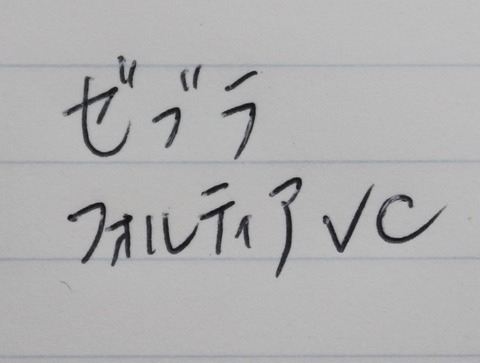 ゼブラ
フォルティアVC